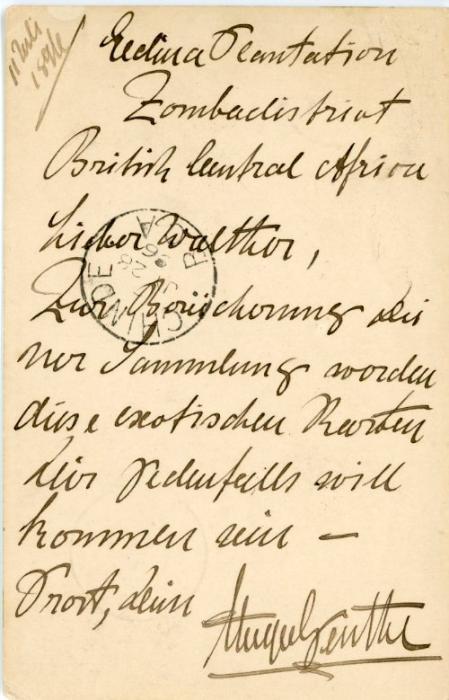 11 Juli
1896
Eedina Plantation
Zombadistrict
British Central Africa
Lieber Walther,
Zur Bereicherung dei
ner Sammlung werden
diese exotischen Karten
dir jedenfalls will
kommen sein —
Prost, dein
CHINDE B.C.A